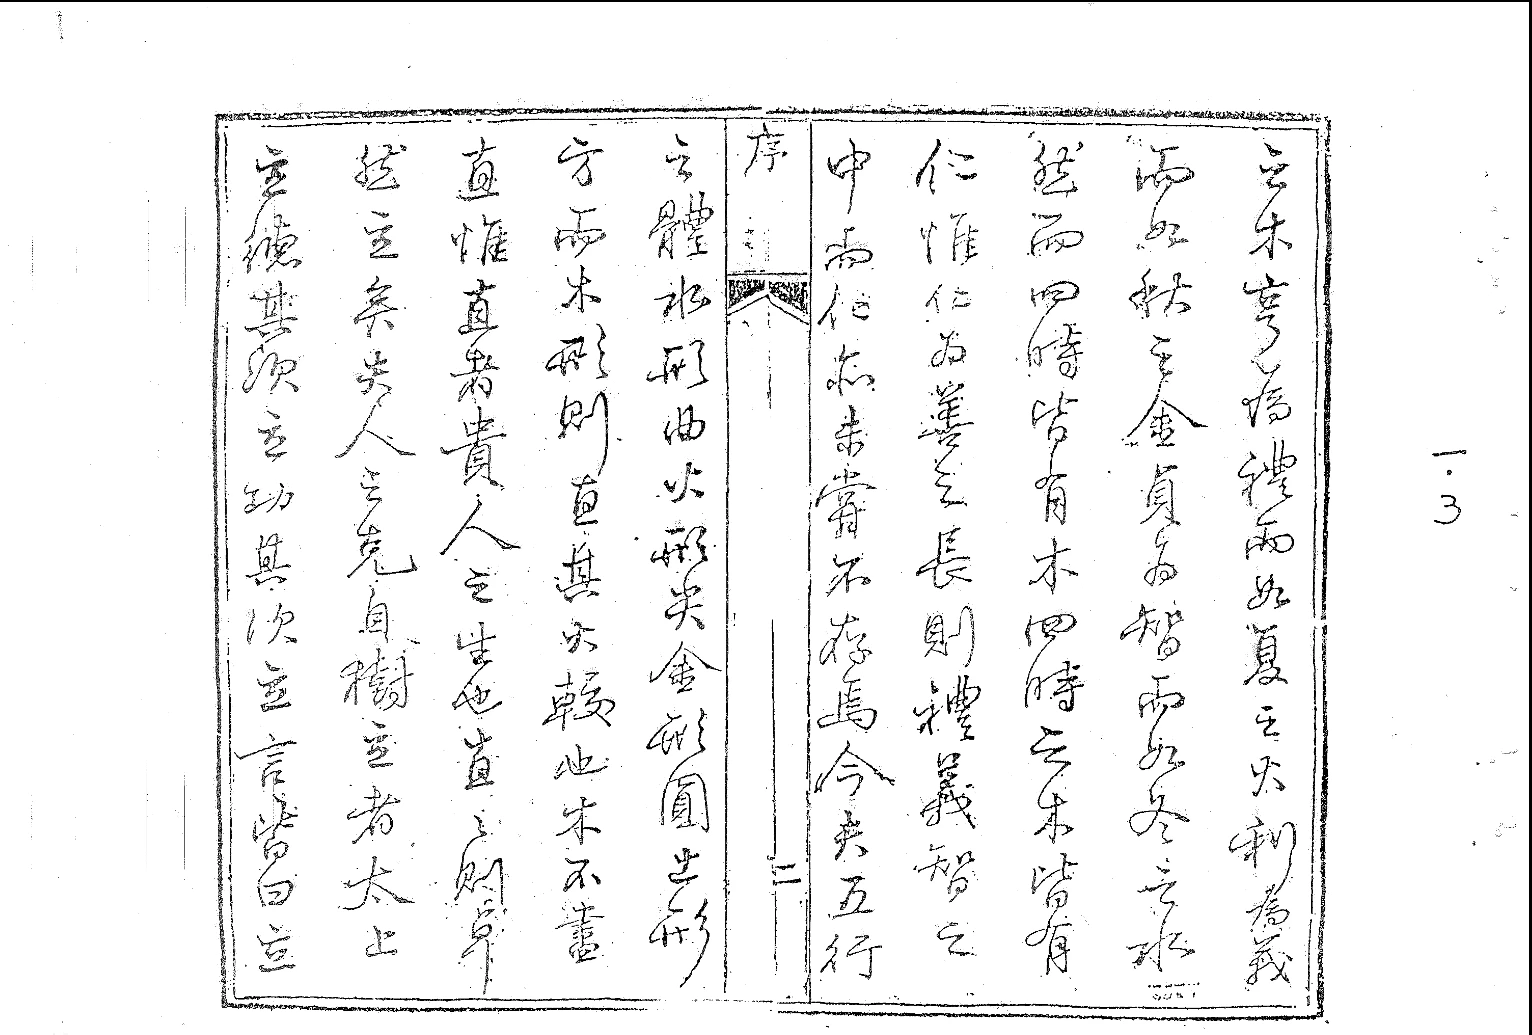 之木亨為禮而如夏之火利為義
而如秋之金貞為智而如冬之水
然而四時皆有木四時之木皆有
仁惟仁為善之長則禮義智之
中而仁亦未嘗不存焉今夫五行
序
二
之體水形曲火形尖金形圓土形
方而木形則直其大較也木不盡
直惟直者貴人之生也直直則卓
然立矣夫人之克自樹立者太上
立德其次立功其次立言皆曰立
1.3